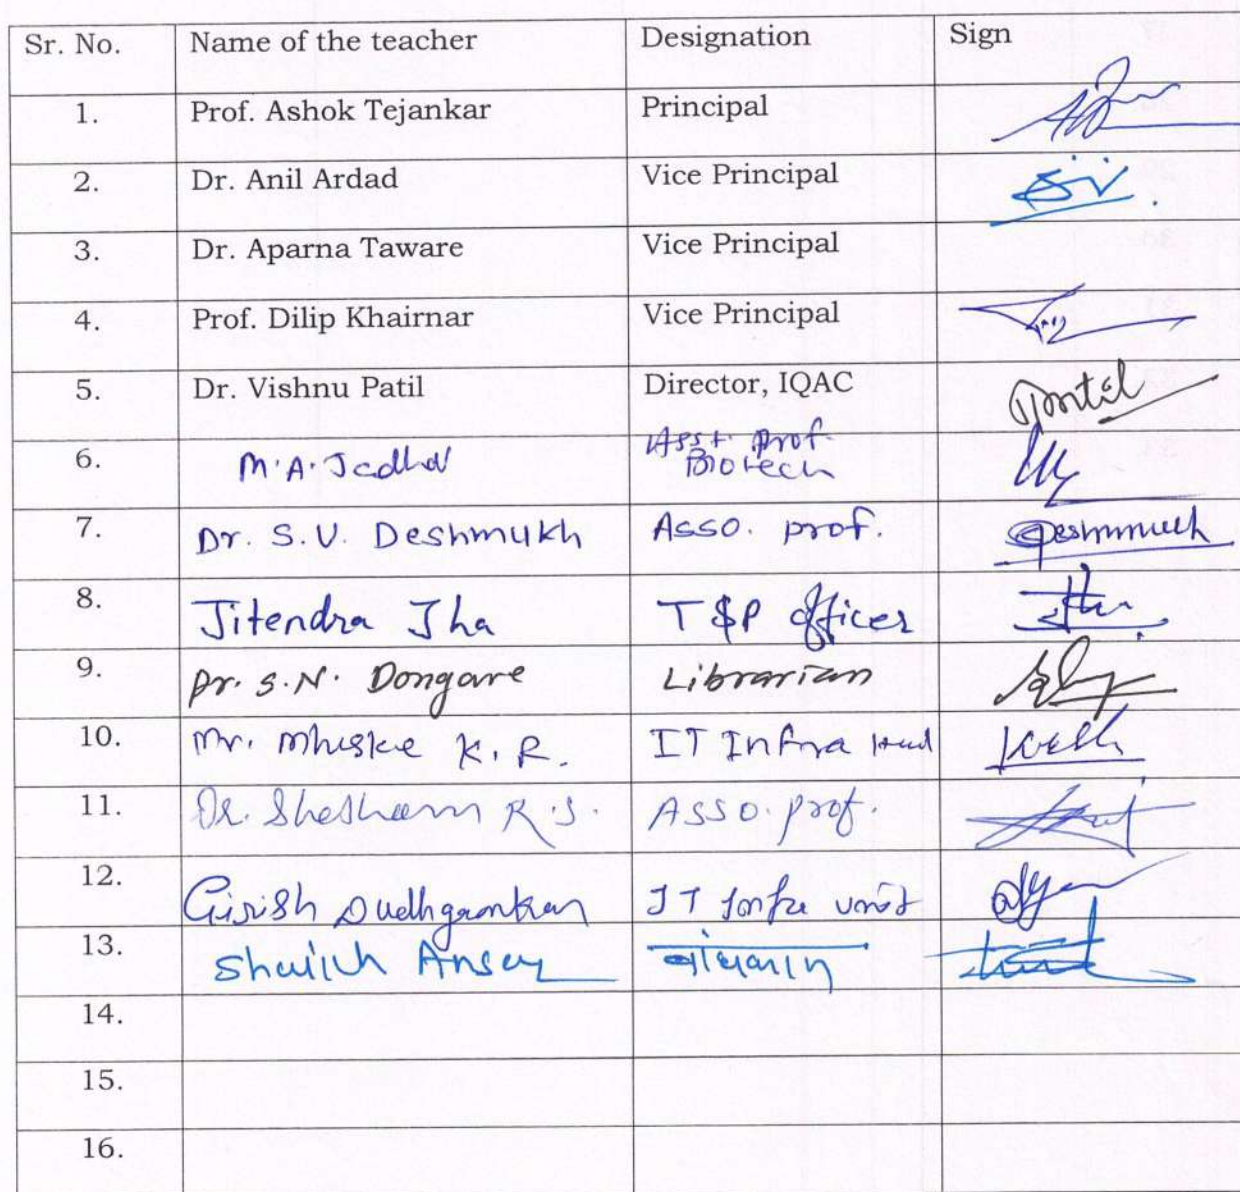 Sr. No. Name of the teacher Designation Sign
1. Prof. Ashok Tejankar Principal
2. Dr. Anil Ardad Vice Principal
3. Dr. Aparna Taware Vice Principal
4. Prof. Dilip Khairnar Vice Principal
5. Dr. Vishnu Patil Director, IQAC
Asst. Prof.
6. M.A. Jadhav Biotech
7. Dr. S.V. Deshmukh Asso. prof. Deshmukh
8. Jitendra Jha T&P officer
9. Dr. S.N. Dongare Librarian
10. Mr. Mhiske K.R. IT Infra Head
11. Dr. R.S. Asso. prof.
12. Girish Dudhgaonkar IT Infra unit
13. Shaikh
14.
15.
16.